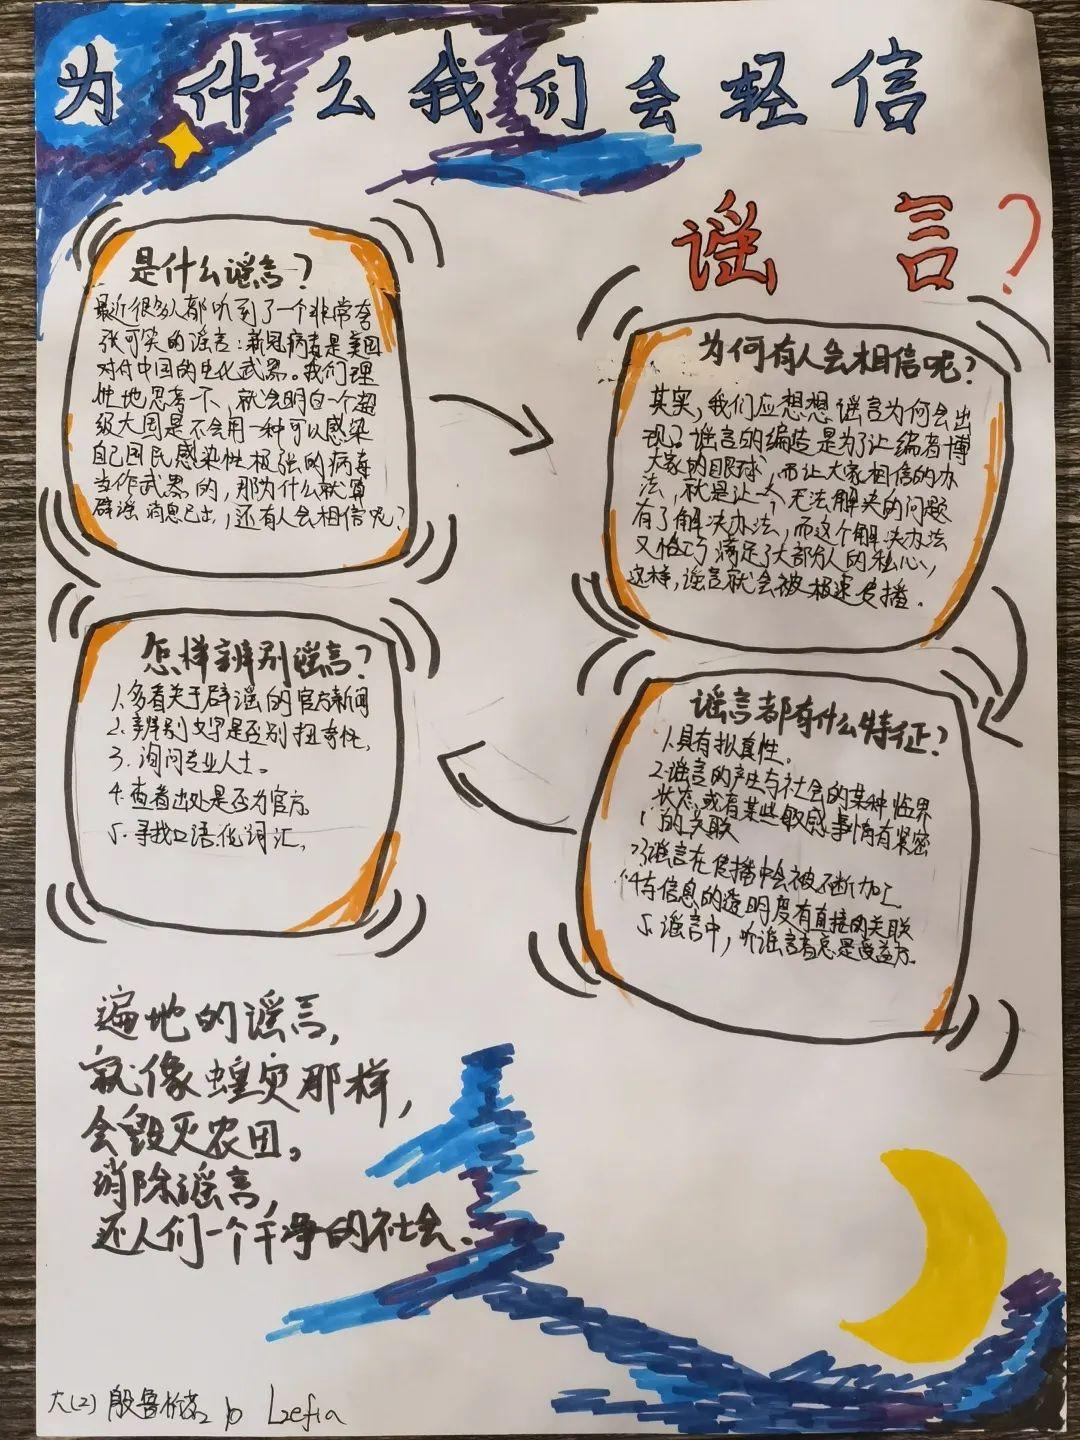 为什么我们会轻信
谣言?
是什么谣言?
最近很多人都听到了一个非常夸
张可笑的谣言:新冠病毒是美国
对付中国的生化武器。我们理
性地思考一下,就会明白一个超
级大国是不会用一种可以感染
自己国民感染性极强的病毒
当作武器的,那为什么就算
辟谣消息已出,还有人会相信呢?
为何有人会相信呢?
其实,我们应想想谣言为何会出
现?谣言的编造是为了让编者博
大家的眼球,而让大家相信的办
法,就是让一个无法解决的问题
有了解决办法,而这个解决办法
又恰巧满足了大部分人的私心,
这样,谣言就会被极速传播.
谣言都有什么特征?
1.具有拟真性。
2.谣言的产生与社会的某种临界
状态,或有某些敏感事情有紧密
的关联
3.谣言在传播中会被不断加工
4.与信息的透明度有直接的关联
5.谣言中,听谣言者总是受益方.
怎样辨别谣言?
1.多看关于辟谣的官方新闻
2.辨别文字是否别扭奇怪,
3.询问专业人士。
4.查看出处是否为官方
5.寻找口语化词汇,
遍地的谣言,
就像蝗灾那样,
会毁灭农田。
消除谣言,
还人们一个干净的社会.
六(2) 殷鲁